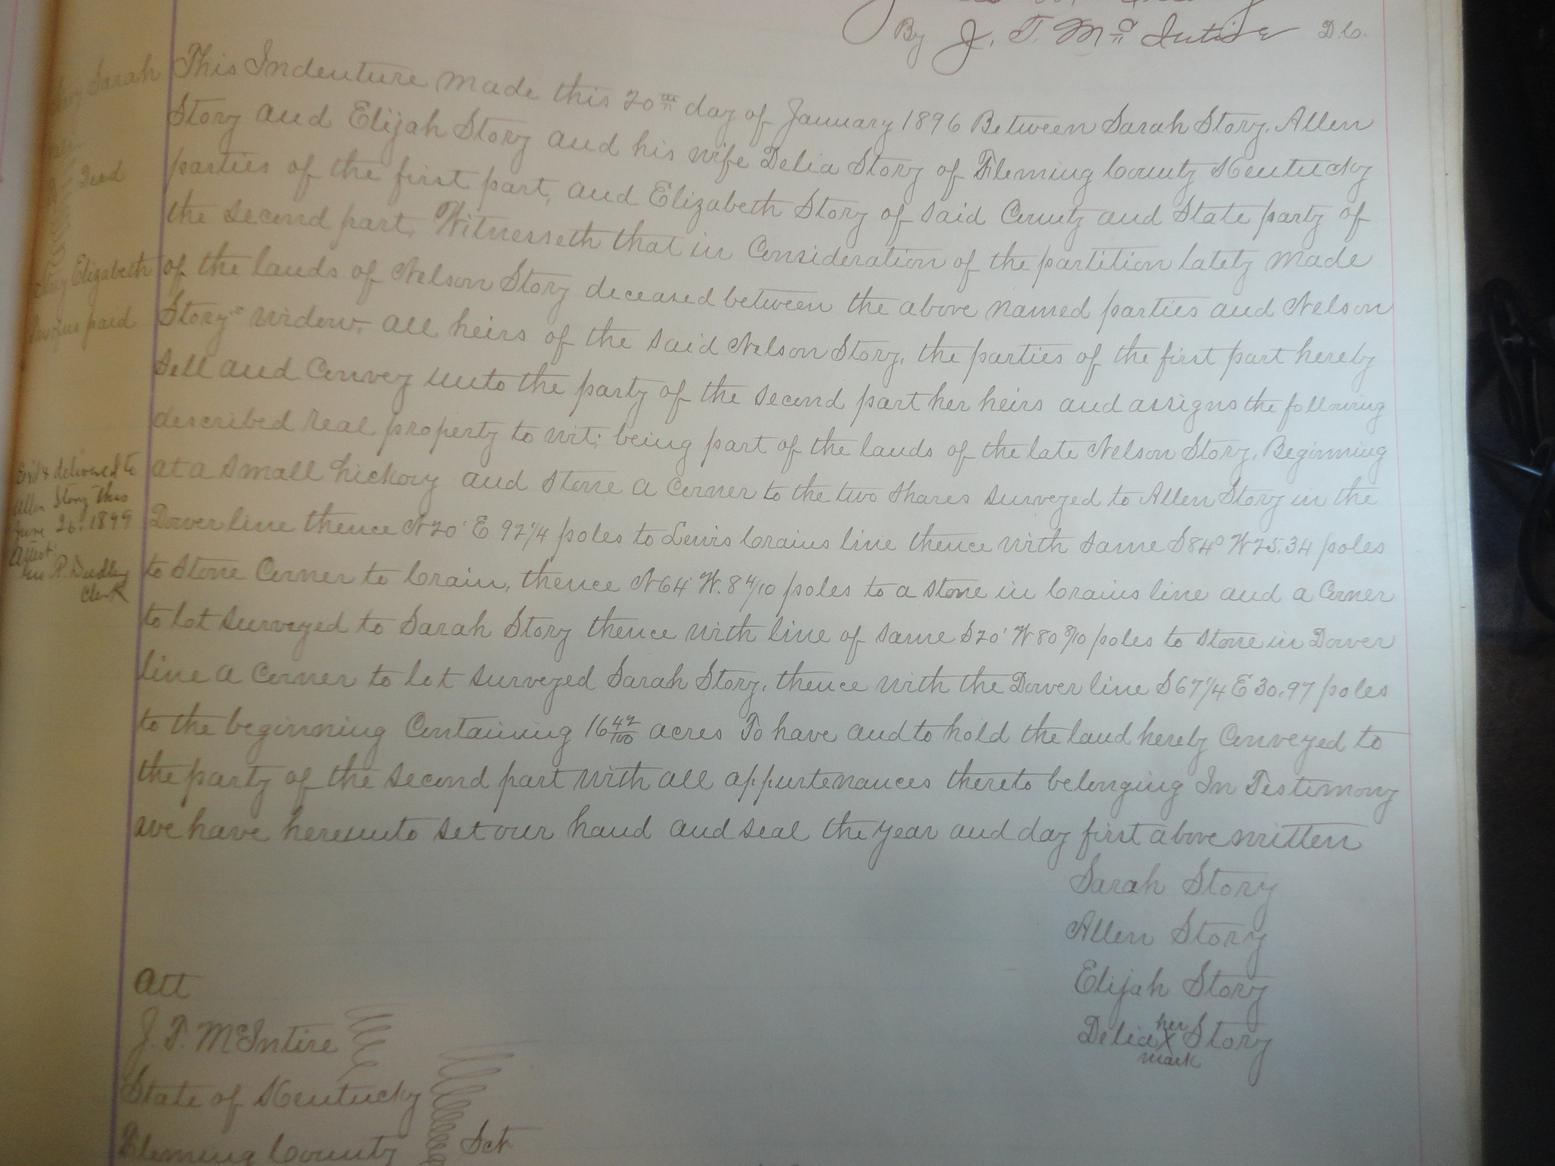 By J. T. McIntire D.C.
Story Sarah
Deed
Story Elizabeth
paid
This Indenture made this 20th day of January 1896 Between Sarah Story, Allen
Story and Elijah Story and his wife Delia Story of Fleming County Kentucky
parties of the first part, and Elizabeth Story of said County and State party of
the second part, Witnesseth that in Consideration of the partition lately made
of the lands of Nelson Story deceased between the above named parties and Nelson
Story's widow, all heirs of the said Nelson Story, the parties of the first part hereby
sell and Convey unto the party of the second part her heirs and assigns the following
described real property to wit; being part of the lands of the late Nelson Story, Beginning
at a small hickory and stone a Corner to the two shares surveyed to Allen Story in the
Dower line thence N 20° E 92 1/4 poles to Lewis Crains line thence with same S 84° W 25.34 poles
to Stone Corner to Crain, thence N 64° W. 8 4/10 poles to a stone in Crains line and a Corner
to lot surveyed to Sarah Story thence with line of same S 20° W 80 8/10 poles to stone in Dower
line a Corner to lot surveyed Sarah Story, thence with the Dower line S 67 1/4 E 30.97 poles
to the beginning Containing 16 42/100 acres To have and to hold the land hereby Conveyed to
the party of the second part with all appurtenances thereto belonging In Testimony
we have hereunto set our hand and seal the year and day first above written
Exd & delivered to
Allen Story this
June 26. 1899
Attest:
R. Dudley
Clerk
Sarah Story
Allen Story
Elijah Story
Delia her X mark Story
Att
J. T. McIntire
State of Kentucky
Fleming County Sct